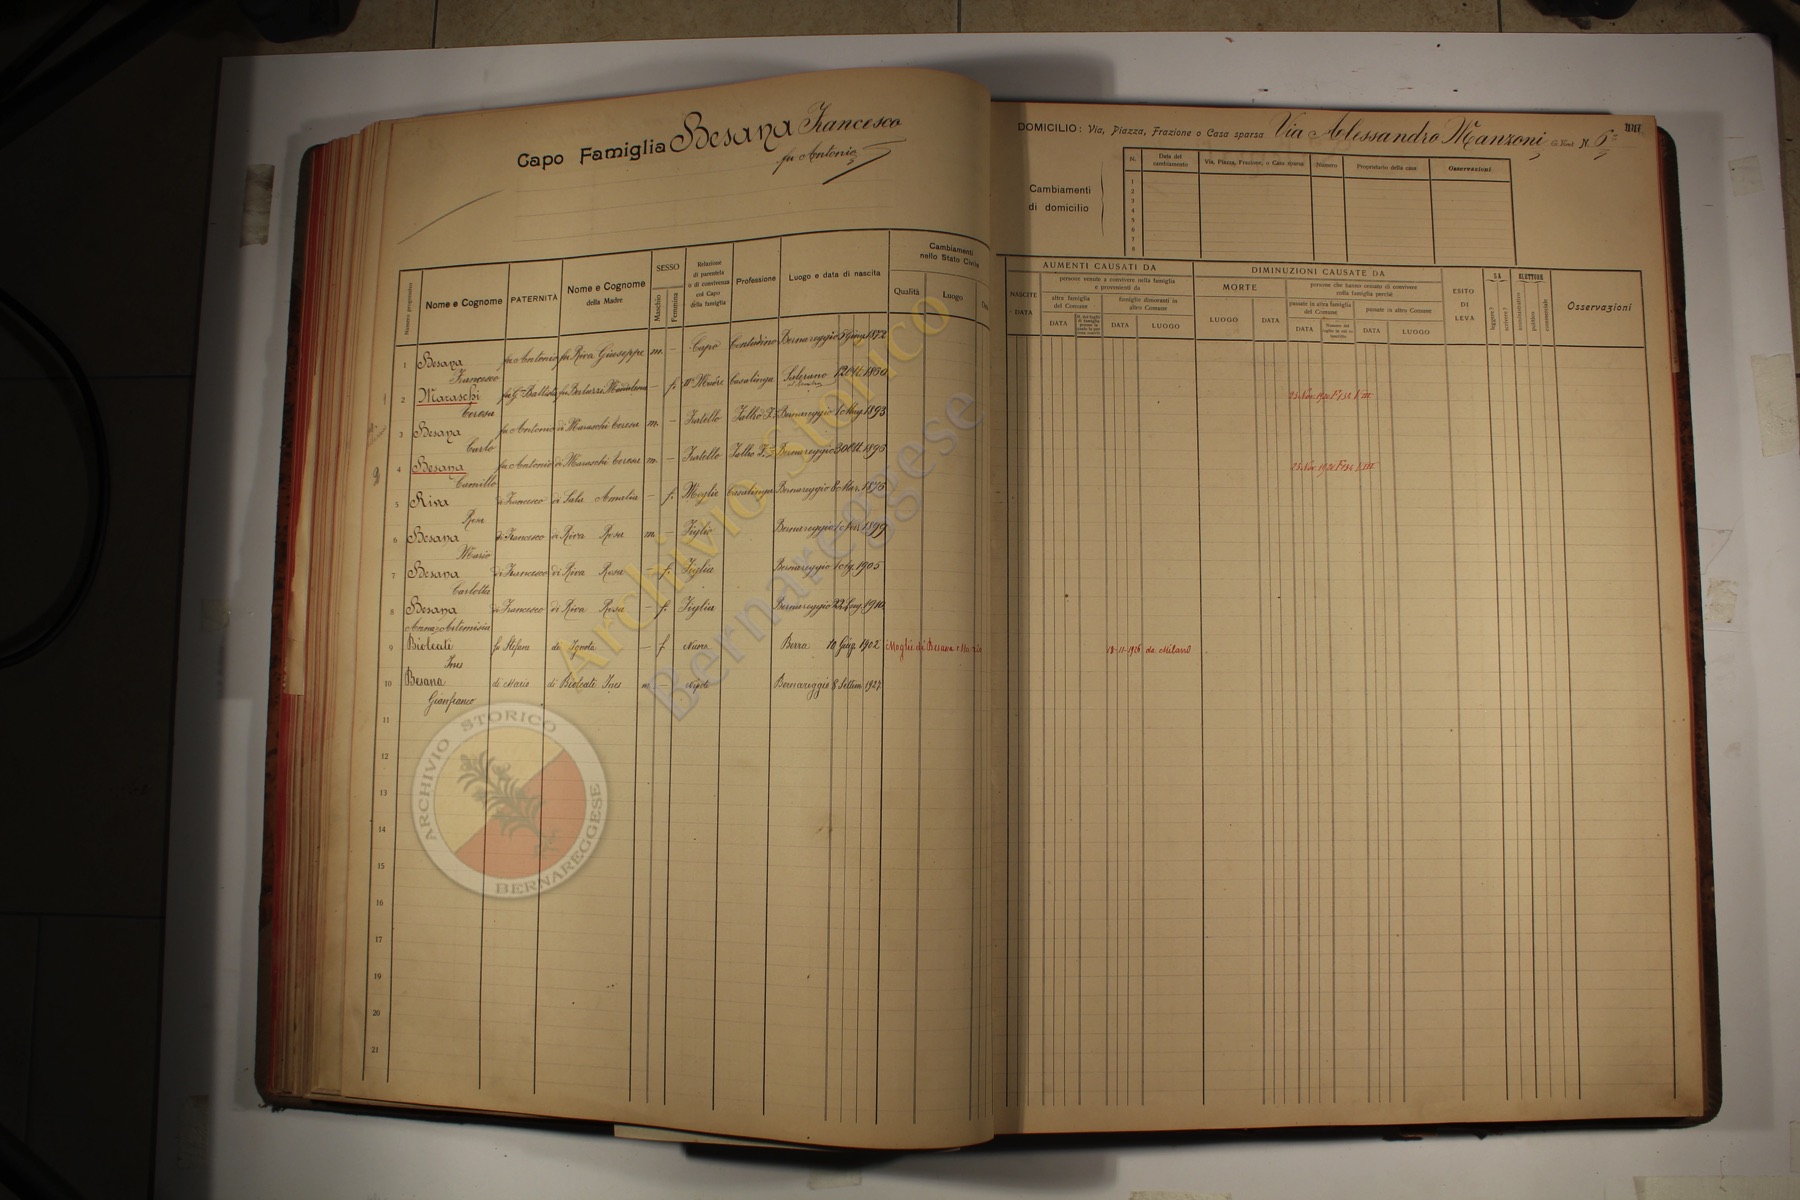 Capo Famiglia Besana Francesco
fu Antonio
DOMICILIO: Via, Piazza, Frazione o Casa sparsa Via Alessandro Manzoni N. 6
Cambiamenti
di domicilio
N. Data del cambiamento Via, Piazza, Frazione, o Casa sparsa Numero Proprietario della casa Osservazioni
1
2
3
4
5
6
7
8
Numero progressivo Nome e Cognome PATERNITÀ Nome e Cognome della Madre SESSO Maschio Femmina Relazione di parentela o di convivenza col Capo della famiglia Professione Luogo e data di nascita Cambiamenti nello Stato Civile Qualità Luogo
NASCITE DATA AUMENTI CAUSATI DA persone venute a convivere nella famiglia e provenienti da altre famiglie del Comune DATA famiglie dimoranti in altro Comune DATA LUOGO
DIMINUZIONI CAUSATE DA MORTE LUOGO DATA persone che hanno cessato di convivere colla famiglia perchè passate in altra famiglia del Comune DATA passate in altro Comune DATA LUOGO
ESITO DI LEVA SA leggere? scrivere? ELETTORE amministrativo politico commerciale Osservazioni
1 Besana Francesco fu Antonio fu Riva Giuseppa m. — Capo Contadino Bernareggio 5 Giug. 1872
2 Maraschi Teresa fu G. Battista fu Maddalena — f. Madre Casalinga 12 1850 23 Nov. 1920
3 Besana Carlo fu Antonio di Maraschi Teresa m. — Fratello Bernareggio 1 Mag. 1893
4 Besana Camillo fu Antonio di Maraschi Teresa m. — Fratello Bernareggio 30 Ott. 1895 23 Nov. 1920
5 Riva Rosa di Francesco di Sala Amalia — f. Moglie Casalinga Bernareggio 8 Mar. 1875
6 Besana Mario di Francesco di Riva Rosa m. — Figlio Bernareggio 1 Nov. 1899
7 Besana Carlotta di Francesco di Riva Rosa — f. Figlia Bernareggio 1905
8 Besana Anna-Artemisia di Francesco di Riva Rosa — f. Figlia Bernareggio 22 1910
9 Bioleati Ines fu Stefano di Ignota — f Nuora Berra 10 Giug 1902 Moglie di Besana Mario 18-11-1926 da Milano
10 Besana Gianfranco di Mario di Bioleati Ines m. — Nipote Bernareggio 8 Settem 1927
11
12
13
14
15
16
17
18
19
20
21
Archivio Storico
Bernareggese
ARCHIVIO STORICO
BERNAREGGESE